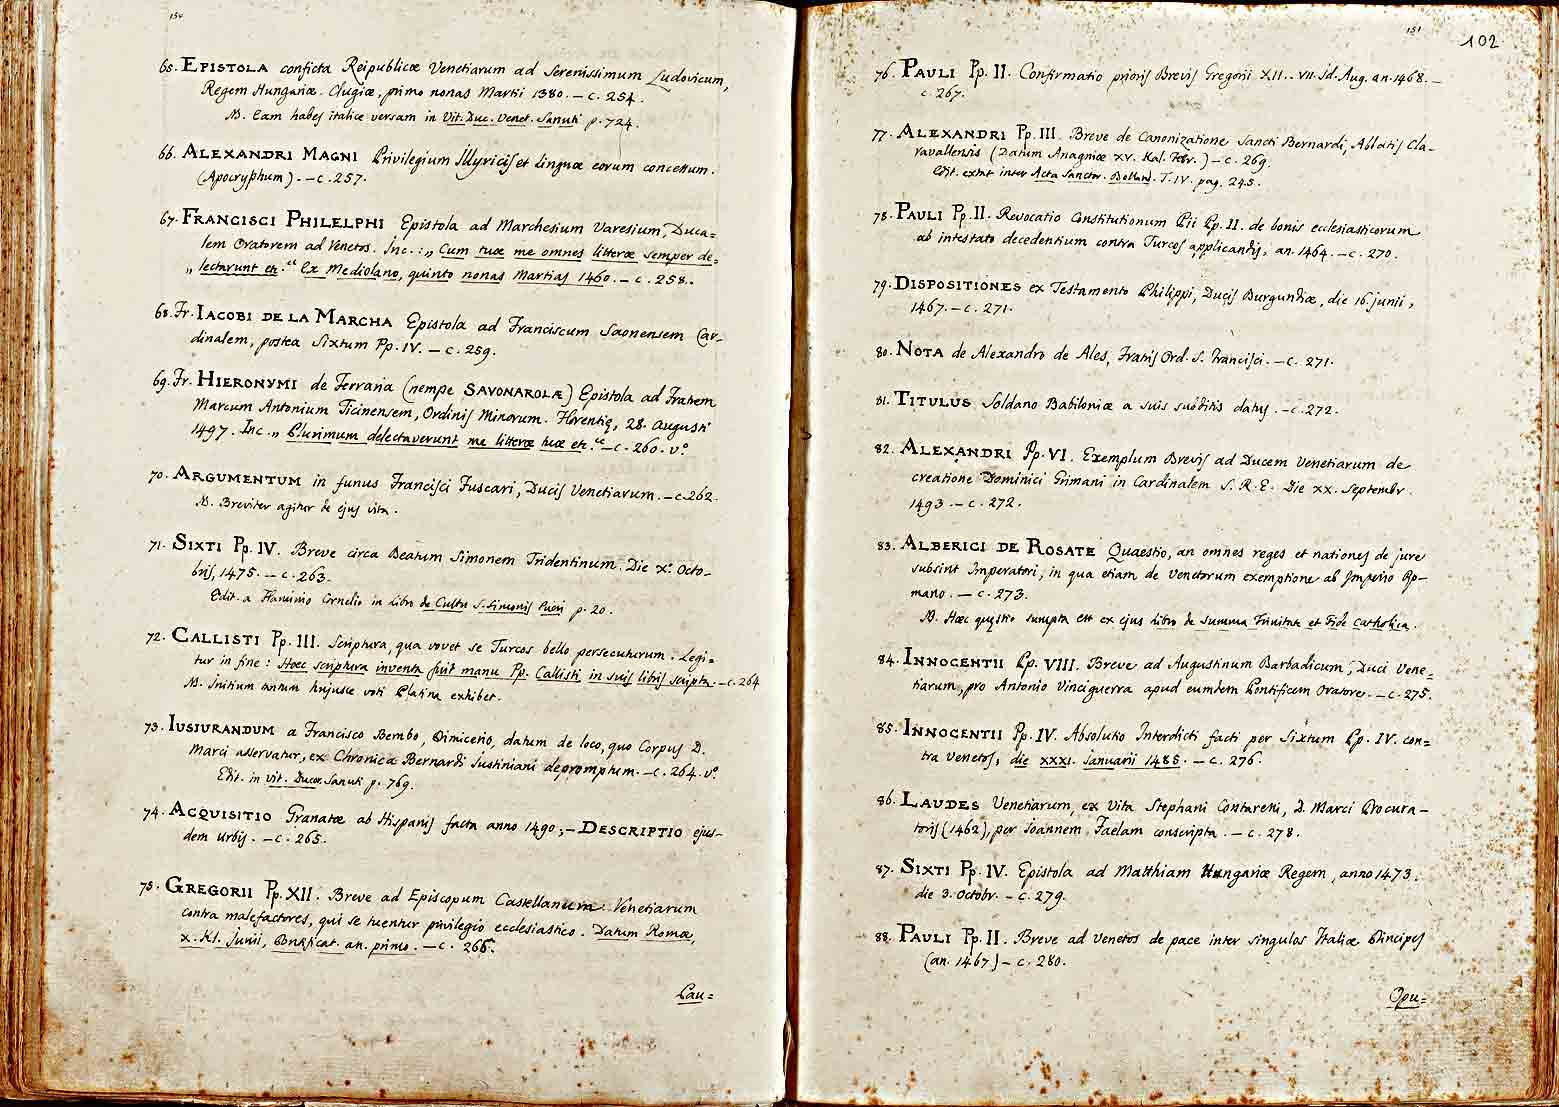 150
65. EPISTOLA conficta Reipublicæ Venetiarum ad Serenissimum Ludovicum,
Regem Hungariæ. Clugiæ, primo nonas Martii 1380. – c. 254.
N. Eam habes italice versam in Vit. Duc. Venet. Sanuti p. 724.
66. ALEXANDRI MAGNI Privilegium Illyricis et linguæ eorum concessum.
(Apocryphum). – c. 257.
67. FRANCISCI PHILELPHI Epistola ad Marchesium Varesium, Duca=
lem Oratorem ad Venetos. Inc.: „ Cum tuæ me omnes litteræ semper de=
„ lectarunt etc.“ Ex Mediolano, quinto nonas Martias 1460. – c. 258.
68. Fr. IACOBI DE LA MARCHA Epistola ad Franciscum Saonensem Car–
dinalem, postea Sixtum Pp. IV. – c. 259.
69. Fr. HIERONYMI de Ferraria (nempe SAVONAROLÆ) Epistola ad Fratrem
Marcum Antonium Ticinensem, Ordinis Minorum. Florentię, 28. Augusti
1497. Inc. „ Plurimum delectaverunt me litteræ tuæ etc.“ – c. 260. vº.
70. ARGUMENTUM in funus Francisci Fuscari, Ducis Venetiarum. – c. 262.
N. Breviter agitur de ejus vita.
71. SIXTI Pp. IV. Breve circa Beatum Simonem Tridentinum. Die Xº. Octo–
bris, 1475. – c. 263.
Edit. a Flaminio Cornelio in Libro de Cultu S. Simonis Pueri p. 20.
72. CALLISTI Pp. III. Scriptura, qua vovet se Turcos bello persecuturum. Legi=
tur in fine: Hæc scriptura inventa fuit manu Pp. Callisti in suis libris scripta. – c. 264
N. Initium tantum hujusce voti Platina exhibet.
73. IUSIURANDUM a Francisco Bembo, Primicerio, datum de loco, quo Corpus D.
Marci asservatur, ex Chronica Bernardi Iustiniani depromptum. – c. 264. vº.
Edit. in Vit. Ducor. Sanuti p. 769.
74. ACQUISITIO Granatæ ab Hispanis facta anno 1490; – DESCRIPTIO ejus–
dem Urbis. – c. 265.
75. GREGORII Pp. XII. Breve ad Episcopum Castellanum Venetiarum
contra malefactores, qui se tuentur privilegio ecclesiastico. Datum Romæ,
X. Kl. Junii, Pontificat. an. primo. – c. 266.
Pau=
151
102
76. PAULI Pp. II. Confirmatio prioris Brevis Gregorii XII. VII. Id. Aug. an. 1468. –
c. 267.
77. ALEXANDRI Pp. III. Breve de Canonizatione Sancti Bernardi, Abbatis Cla–
ravallensis (Datum Anagniæ XV. Kal. Febr.) – c. 269.
Edit. extat inter Acta Sanctor. Bolland. T. IV. pag. 245.
78. PAULI Pp. II. Revocatio Constitutionum Pii Pp. II. de bonis ecclesiasticorum
ab intestato decedentium contra Turcos applicandis, an. 1464. – c. 270.
79. DISPOSITIONES ex Testamento Philippi, Ducis Burgundiæ, die 16. junii,
1467. – c. 271.
80. NOTA de Alexandro de Ales, Fratris Ord. S. Francisci. – c. 271.
81. TITULUS Soldano Babiloniæ a suis subditis datus. – c. 272.
82. ALEXANDRI Pp. VI. Exemplum Brevis ad Ducem Venetiarum de
creatione Dominici Grimani in Cardinalem S. R. E. Die XX. Septembr.
1493. – c. 272.
83. ALBERICI DE ROSATE Quaestio, an omnes reges et nationes de jure
subsint Imperatori, in qua etiam de Venetorum exemptione ab Imperio Ro–
mano. – c. 273.
N. Hæc quęstio sumpta est ex ejus libro de Summa Trinitate et Fide Catholica.
84. INNOCENTII Pp. VIII. Breve ad Augustinum Barbadicum, Duci Vene=
tiarum, pro Antonio Vinciguerra apud eumdem Pontificem Oratore. – c. 275.
85. INNOCENTII Pp. IV. Absolutio Interdicti facti per Sixtum Pp. IV. con=
tra Venetos, die XXXI. Ianuarii 1485. – c. 276.
86. LAUDES Venetiarum, ex vita Stephani Contareni, D. Marci Procura–
toris (1462), per Ioannem Faelam conscripta. – c. 278.
87. SIXTI Pp. IV. Epistola ad Matthiam Hungariæ Regem, anno 1473.
die 3. Octobr. – c. 279.
88. PAULI Pp. II. Breve ad Venetos de pace inter singulos Italiæ Principes
(an. 1467) – c. 280.
Opu=